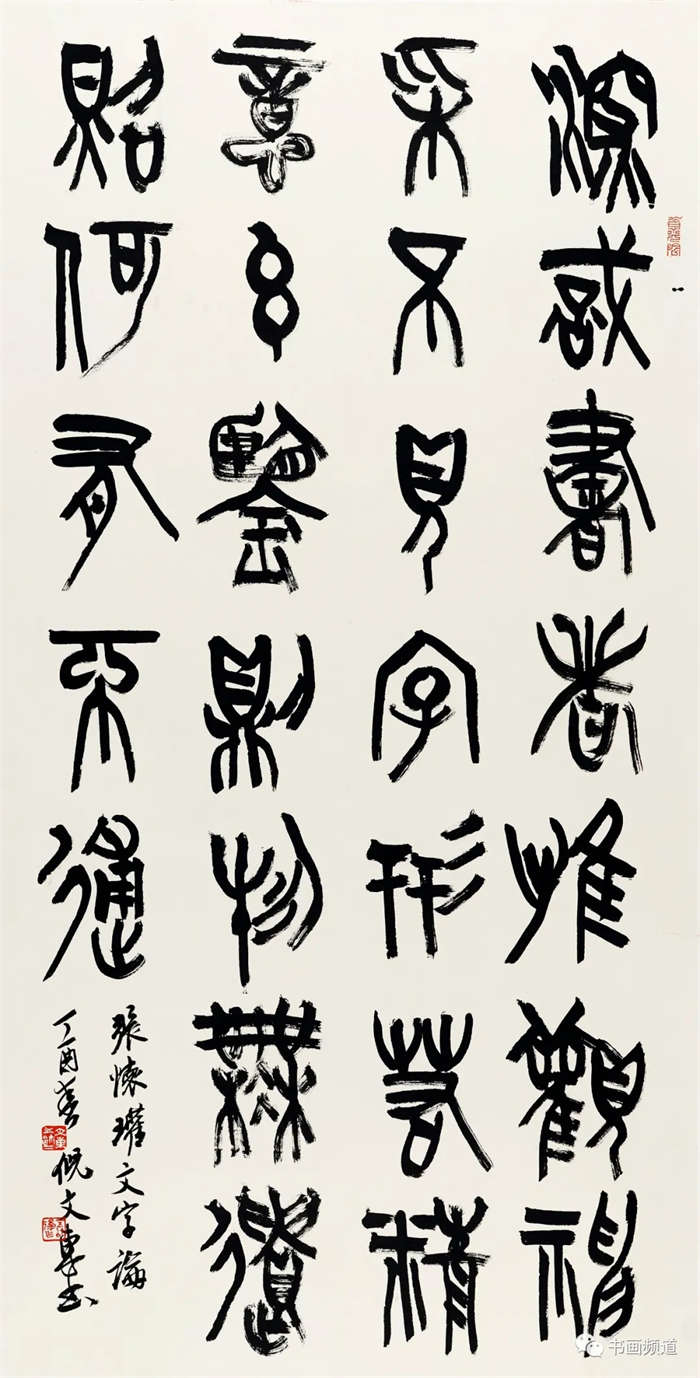 深識書者惟觀神
采不見字形若精
意玄鑒則物無遺
照何有不通
張懷瓘文字論
丁酉春倪文東書
书画频道